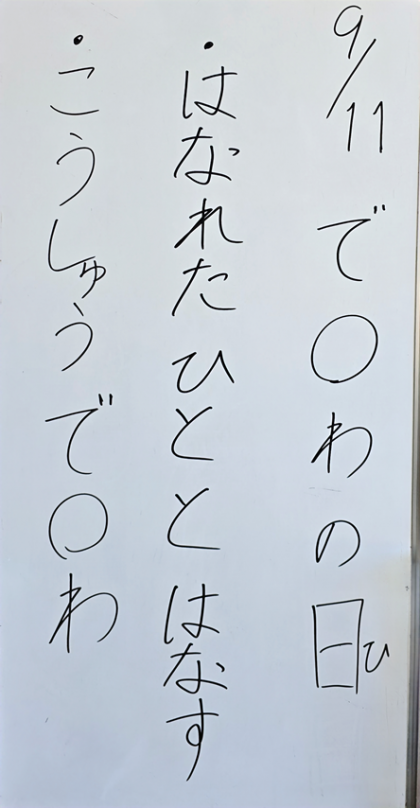 9/11 で〇わの日ひ
・はなれたひとと はなす
・こうしゅうで〇わ